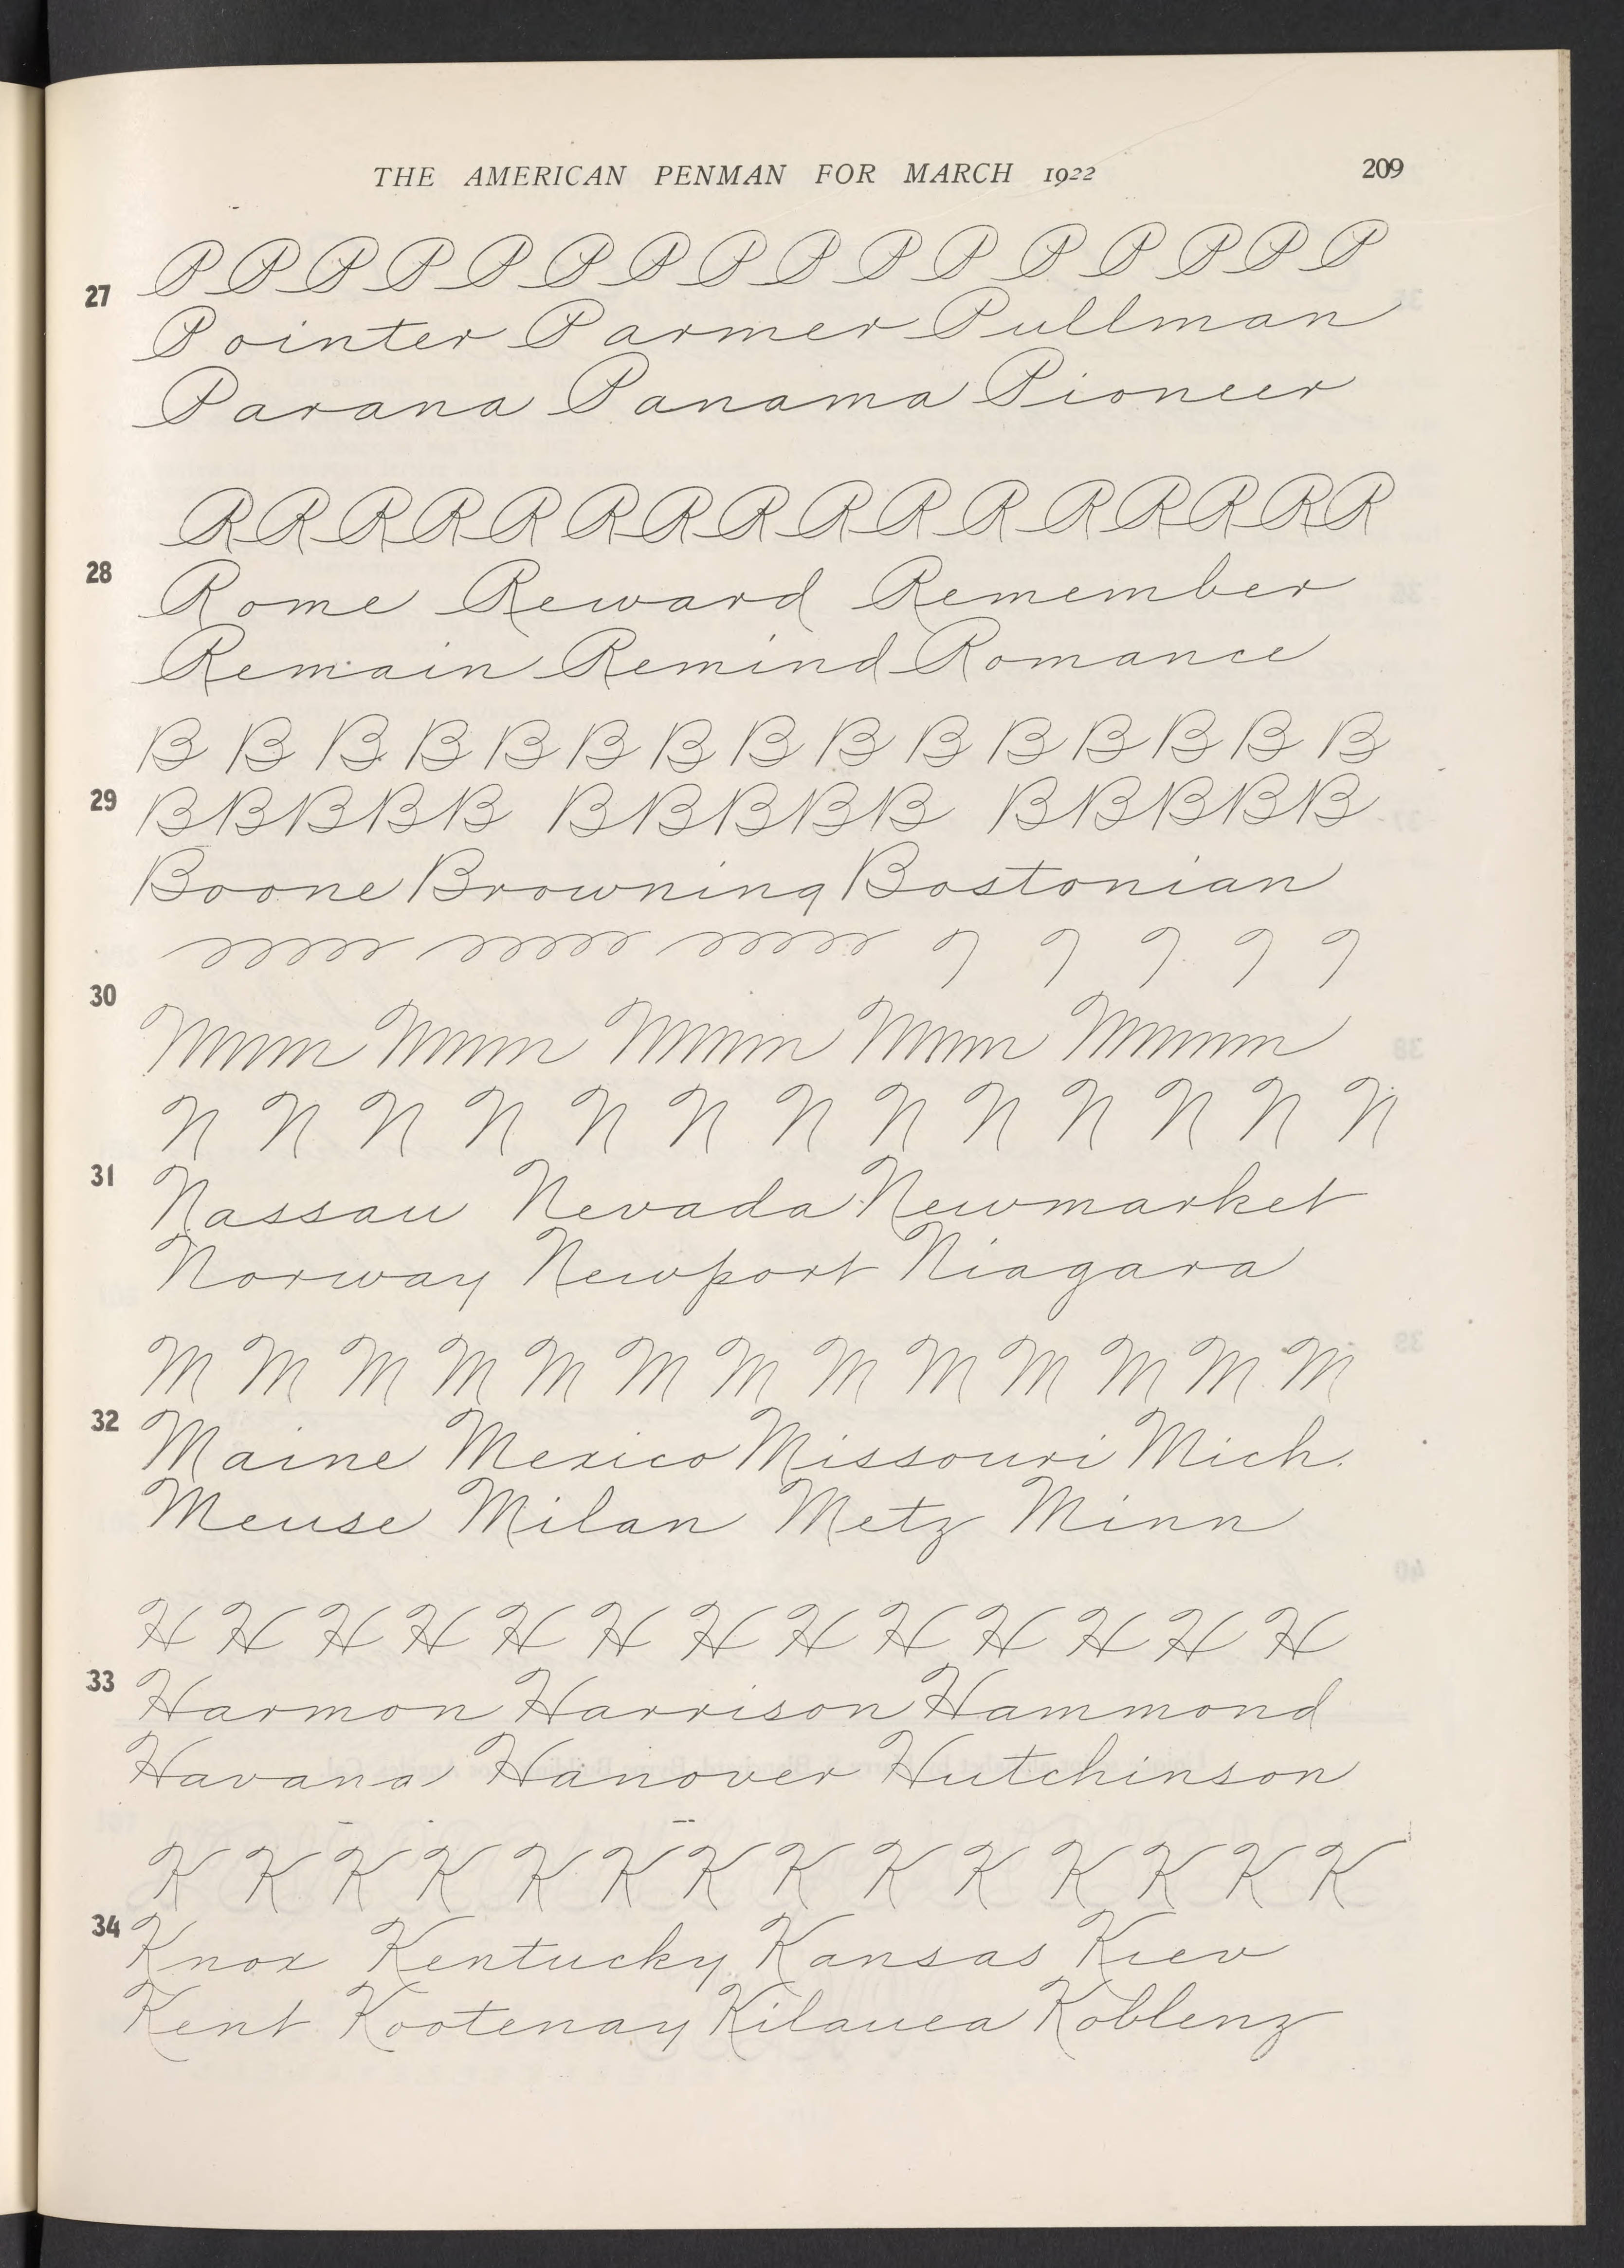 THE AMERICAN PENMAN FOR MARCH 1922 209
P P P P P P P P P P P P P P P P
27
Pointer Parmer Pullman
Parana Panama Pioneer
R R R R R R R R R R R R R R R R
28
Rome Reward Remember
Remain Remind Romance
B B B B B B B B B B B B B B B
29
BBBBB BBBBB BBBBB
Boone Browning Bostonian
30
N N N N N N N N N N N N N
31
Nassau Nevada Newmarket
Norway Newport Niagara
M M M M M M M M M M M M M
32
Maine Mexico Missouri Mich.
Meuse Milan Metz Minn
H H H H H H H H H H H H H
33
Harmon Harrison Hammond
Havana Hanover Hutchinson
K K K K K K K K K K K K K K
34
Knox Kentucky Kansas Kiev
Kent Kootenay Kilauea Koblenz